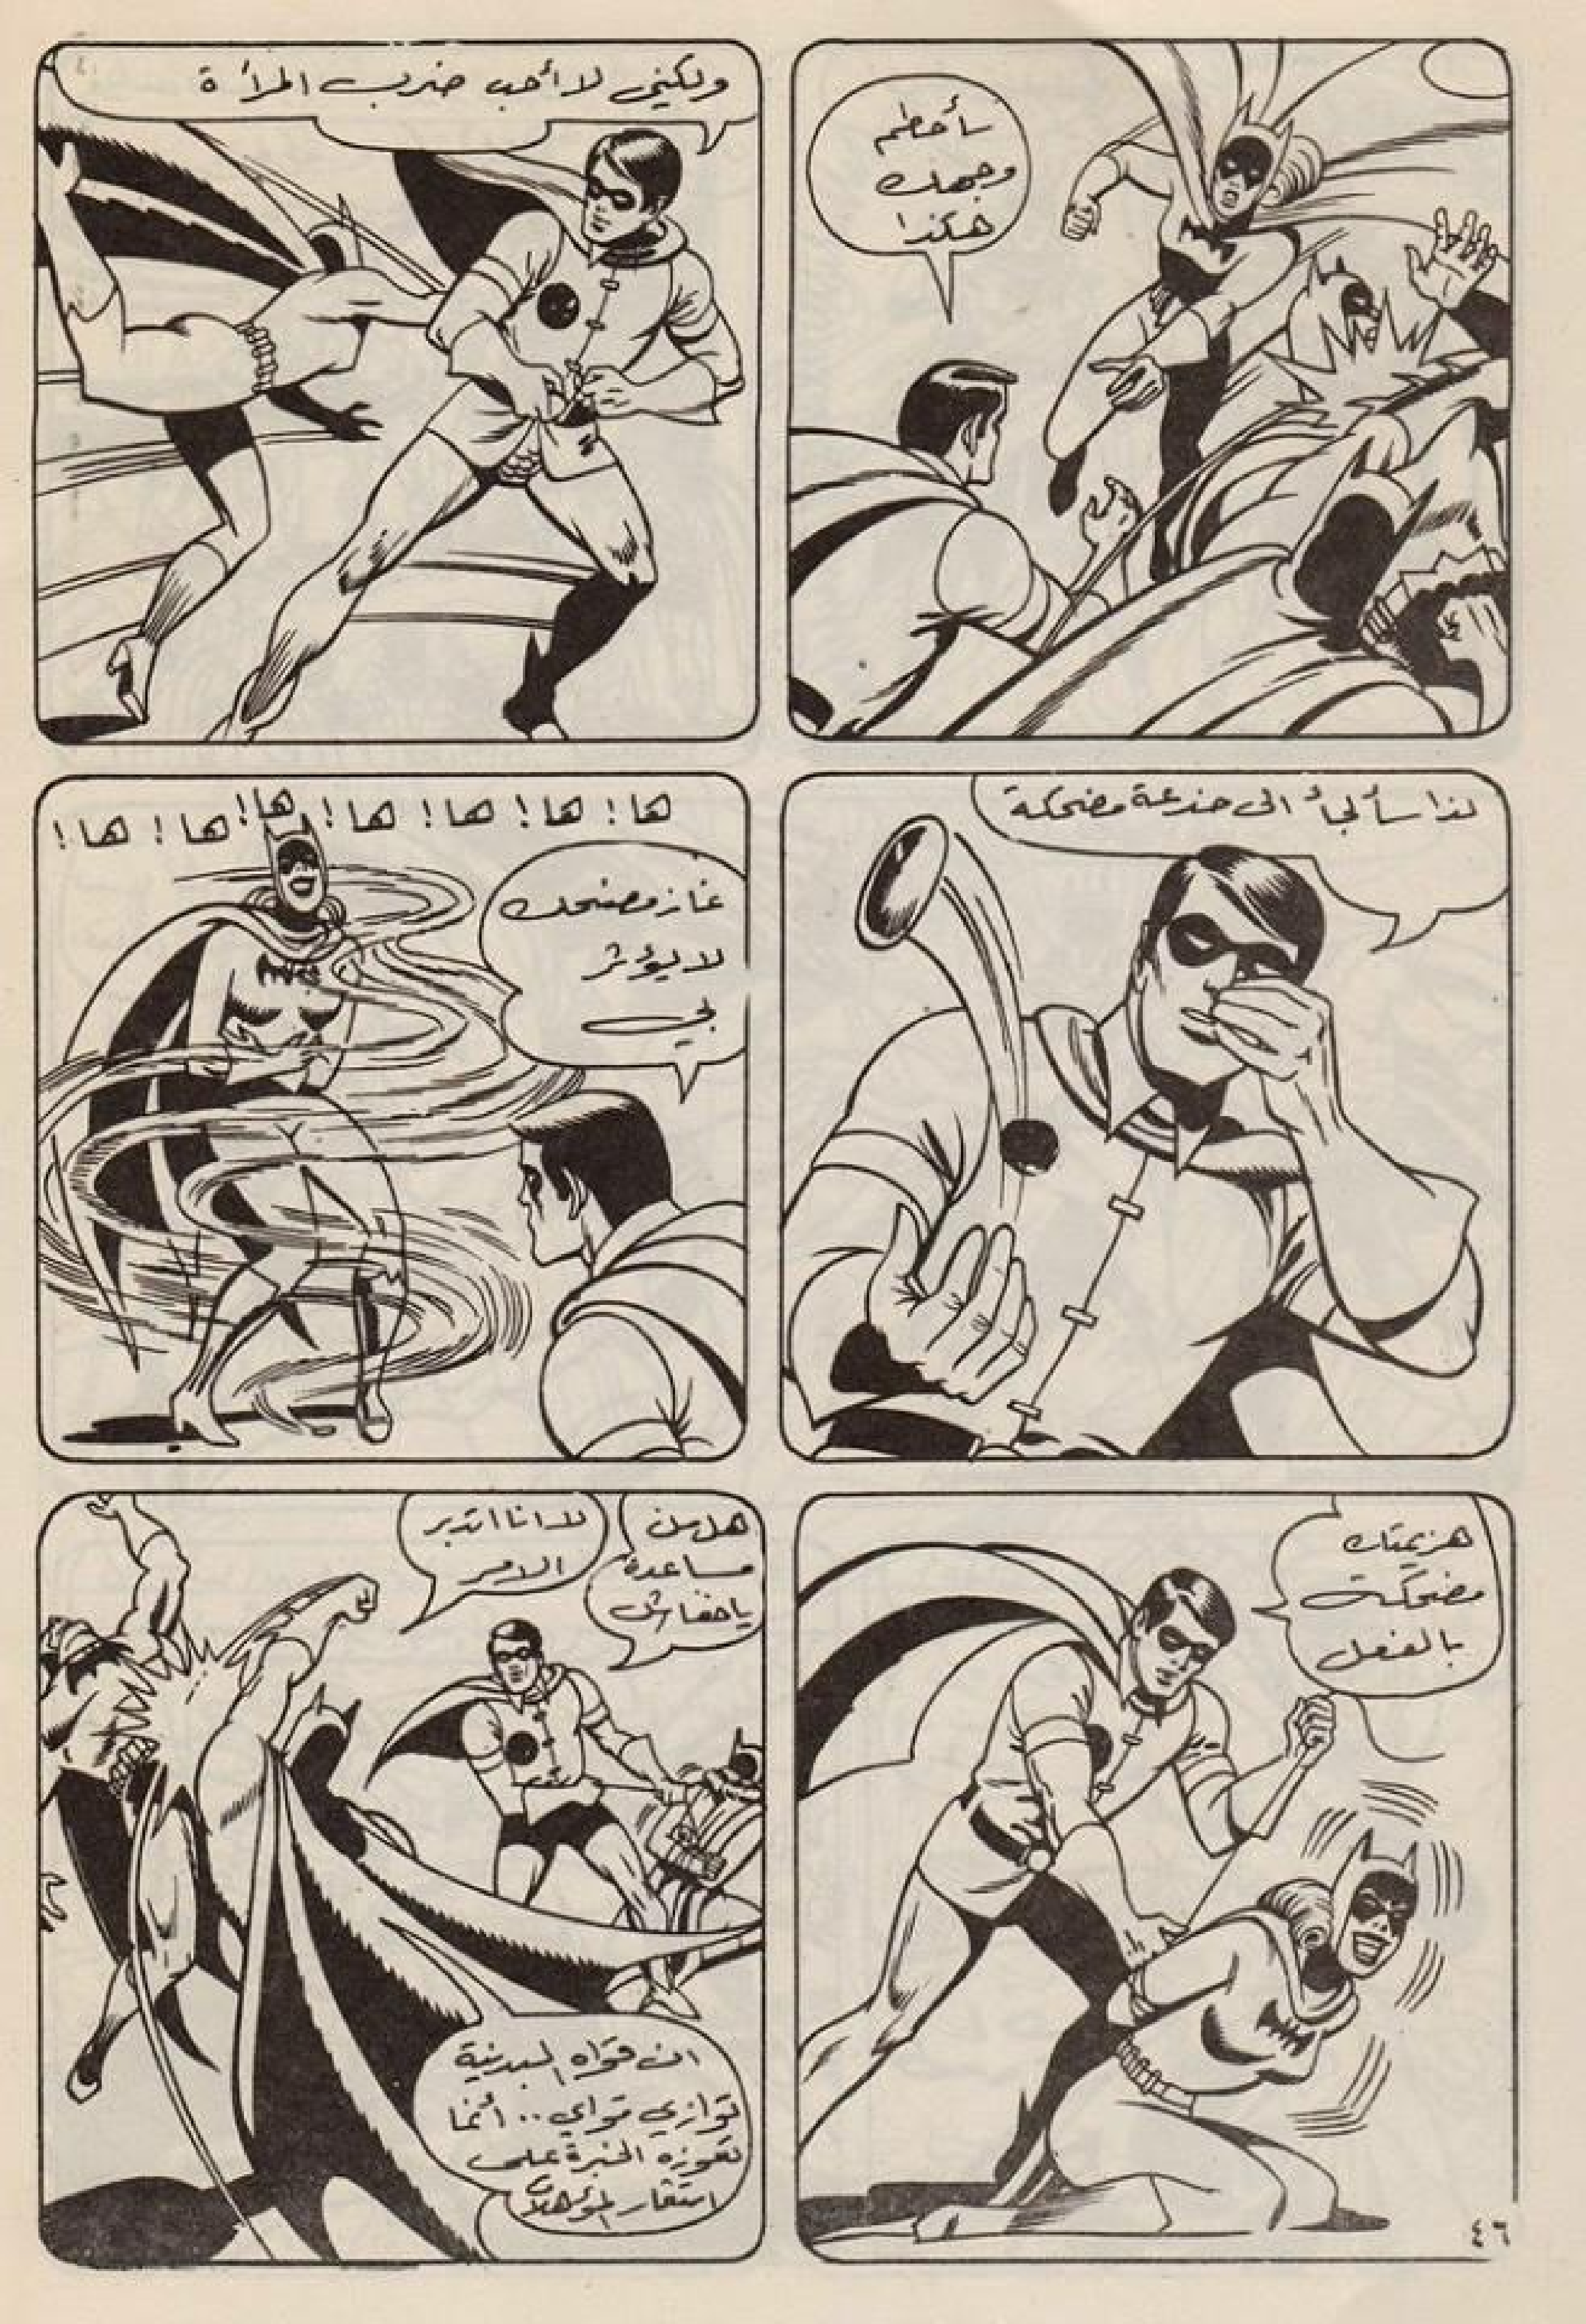 سأحطم
وجهك
هكذا
ولكني لا أحب ضرب المرأة
لذا سألجأ الى خدعة مضحكة
ها! ها! ها! ها! ها! ها! ها!
غاز مضحك
لا يؤثر
بي
هزيمتك
مضحكة
بالفعل
هل من
مساعدة
يا خفاش
لا انا اتدبر
الامر
ان قواه البدنية
توازي قواي .. أنما
تعوزه الخبرة على
استغلال المؤهلات
٤٦